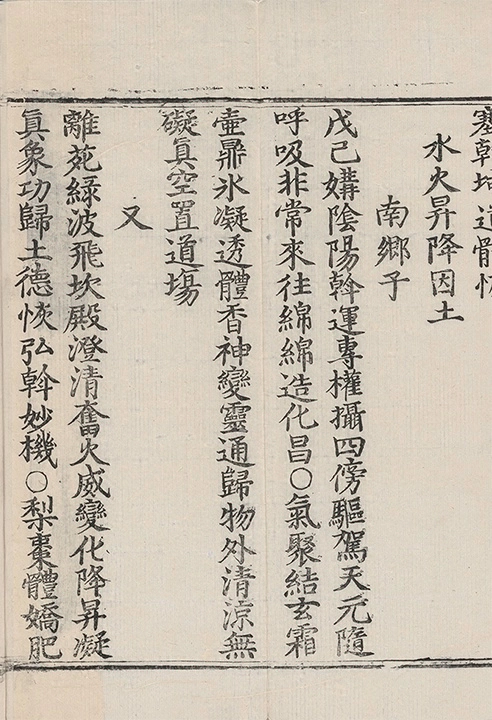 塞乾坤道體恢
水火昇降因土
南鄉子
戊己媾陰陽斡運專權攝四傍驅駕天元隨
呼吸非常來往綿綿造化昌○氣聚結玄霜
壺鼎氷凝透體香神變靈通歸物外清涼無
礙眞空置道塲
又
離苑綠波飛坎殿澄清奮火威變化降昇凝
眞象功歸土德恢弘斡妙機○梨棗體嬌肥